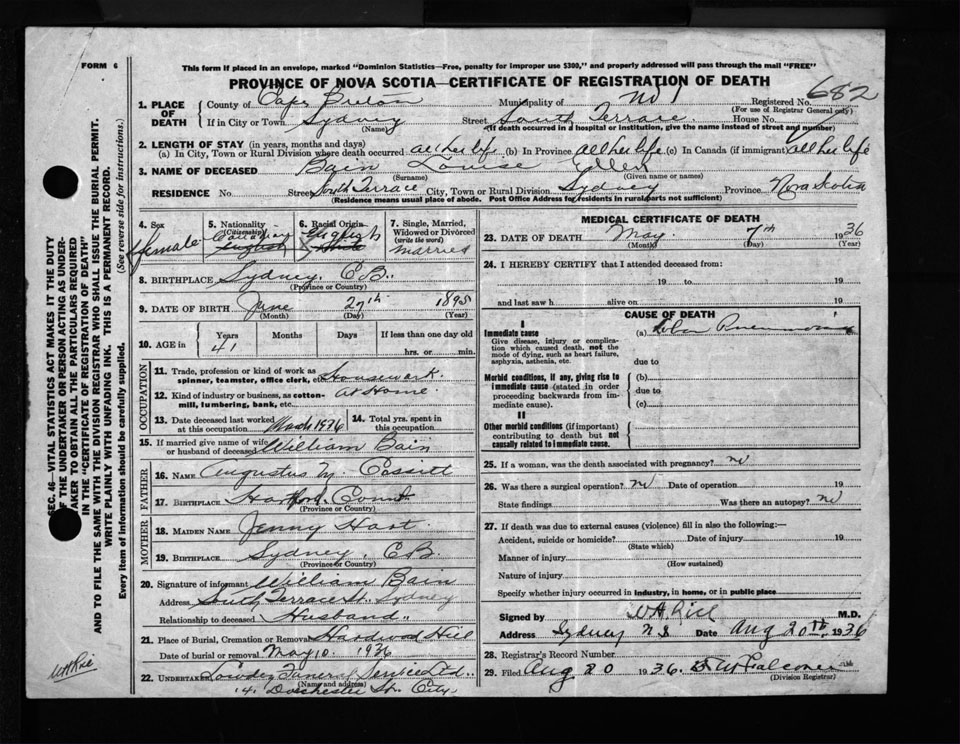 FORM 6
This form if placed in an envelope, marked "Dominion Statistics—Free, penalty for improper use $300," and properly addressed will pass through the mail "FREE"
PROVINCE OF NOVA SCOTIA—CERTIFICATE OF REGISTRATION OF DEATH
682
1. PLACE OF DEATH
County of Cape Breton Municipality of No 1 Registered No.
(For use of Registrar General only)
If in City or Town Sydney Street South Terrace House No.
(Name) (If death occurred in a hospital or institution, give the name instead of street and number)
2. LENGTH OF STAY (in years, months and days)
(a) In City, Town or Rural Division where death occurred all her life (b) In Province all her life (c) In Canada (if immigrant) all her life
3. NAME OF DECEASED Bain Louise Ellen
(Surname) (Given name or names)
RESIDENCE No. Street South Terrace City, Town or Rural Division Sydney Province Nova Scotia
(Residence means usual place of abode. Post Office Address for residents in rural parts not sufficient)
4. Sex female
5. Nationality (Citizenship) Canadian English
6. Racial Origin English
7. Single, Married, Widowed or Divorced (write the word) Married
8. BIRTHPLACE Sydney, C.B.
(Province or Country)
9. DATE OF BIRTH June 27th 1895
(Month) (Day) (Year)
10. AGE in Years Months Days If less than one day old
41 hrs. or min.
OCCUPATION
11. Trade, profession or kind of work as spinner, teamster, office clerk, etc. Housework
12. Kind of industry or business, as cotton-mill, lumbering, bank, etc. at Home
13. Date deceased last worked at this occupation March 1936
14. Total yrs. spent in this occupation
15. If married give name of wife or husband of deceased William Bain
FATHER
16. NAME Augustus Cossitt
17. BIRTHPLACE Hartford, Connt.
(Province or Country)
MOTHER
18. MAIDEN NAME Jenny Hart
19. BIRTHPLACE Sydney, C.B.
(Province or Country)
20. Signature of informant William Bain
Address South Terrace St. Sydney
Relationship to deceased Husband
21. Place of Burial, Cremation or Removal Hardwood Hill
Date of burial or removal May 10. 1936
22. UNDERTAKER Funeral Service Ltd.
(Name and address)
14 Dorchester St. City
MEDICAL CERTIFICATE OF DEATH
23. DATE OF DEATH May 7th 1936
(Month) (Day) (Year)
24. I HEREBY CERTIFY that I attended deceased from:
19 to 19
and last saw h alive on 19
CAUSE OF DEATH
I
Immediate cause
Give disease, injury or complication which caused death, not the mode of dying, such as heart failure, asphyxia, asthenia, etc.
(a) Lobar Pneumonia
due to
Morbid conditions, if any, giving rise to immediate cause (stated in order proceeding backwards from immediate cause).
(b)
due to
(c)
II
Other morbid conditions (if important) contributing to death but not causally related to immediate cause.
25. If a woman, was the death associated with pregnancy? no
26. Was there a surgical operation? no Date of operation 19
State findings Was there an autopsy? no
27. If death was due to external causes (violence) fill in also the following:—
Accident, suicide or homicide? Date of injury 19
(State which)
Manner of injury
(How sustained)
Nature of injury
Specify whether injury occurred in industry, in home, or in public place
Signed by M.D.
Address Sydney N.S Date Aug 20th, 1936
28. Registrar's Record Number
29. Filed Aug 20 1936. Falconer
(Division Registrar)
SEC. 46—VITAL STATISTICS ACT MAKES IT THE DUTY OF THE UNDERTAKER OR PERSON ACTING AS UNDERTAKER TO OBTAIN ALL THE PARTICULARS REQUIRED IN THE "CERTIFICATE OF REGISTRATION OF DEATH"
AND TO FILE THE SAME WITH THE DIVISION REGISTRAR WHO SHALL ISSUE THE BURIAL PERMIT.
WRITE PLAINLY WITH UNFADING INK. THIS IS A PERMANENT RECORD.
Every item of information should be carefully supplied. (See reverse side for instructions.)